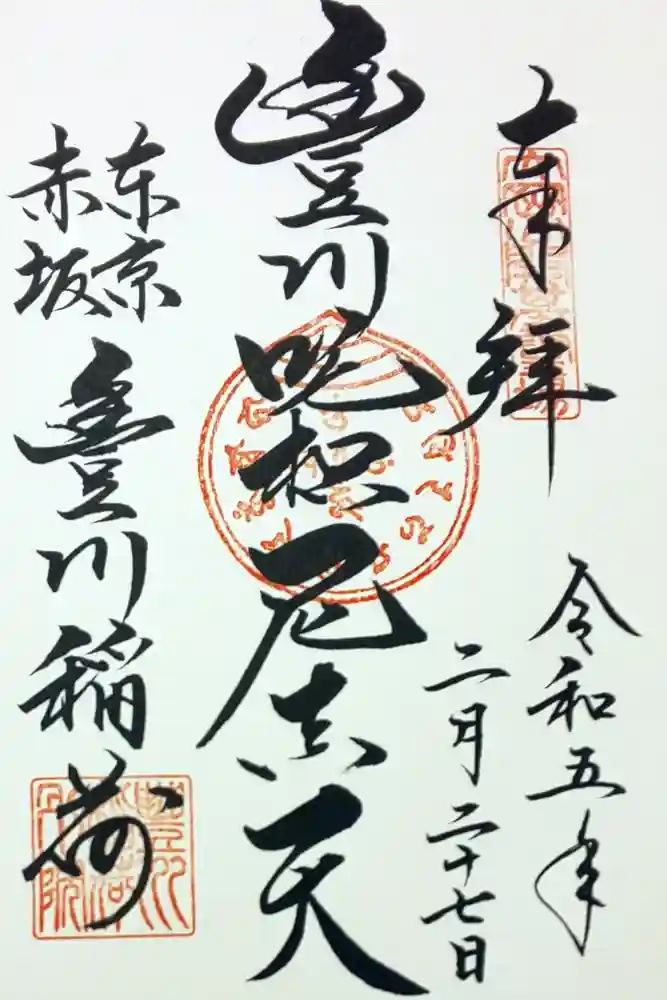 奉拝
令和五年
二月二十七日
豐川吒枳尼真天
東京
赤坂
豐川稲荷